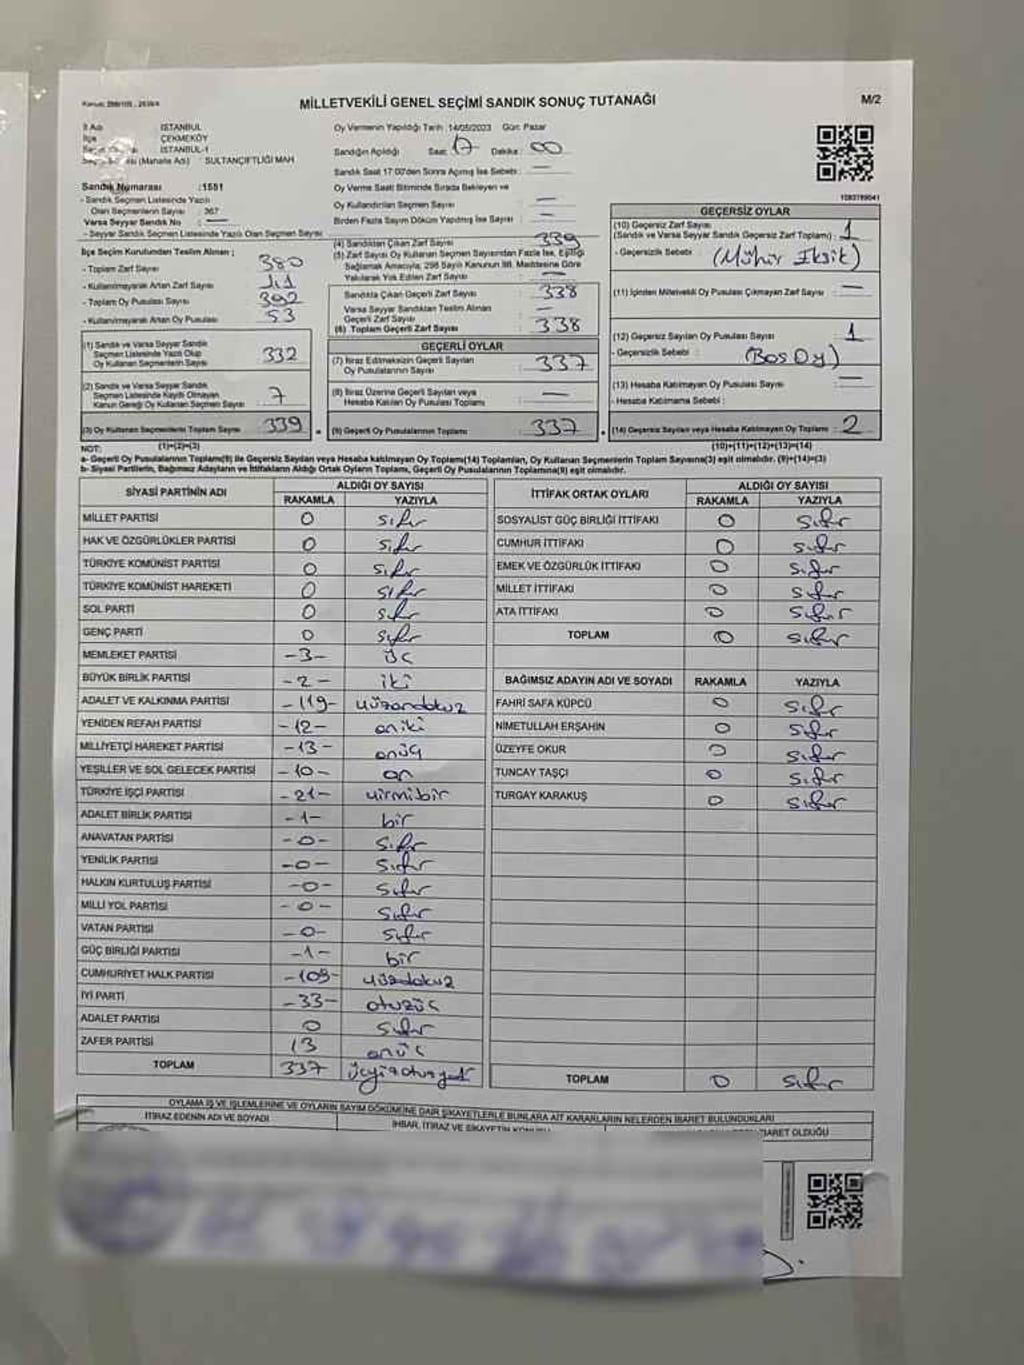 MİLLETVEKİLİ GENEL SEÇİMİ SANDIK SONUÇ TUTANAĞI
M/2
İl Adı : İSTANBUL
İlçe : ÇEKMEKÖY
İSTANBUL-1
(Mahalle Adı) : SULTANÇİFTLİĞİ MAH
Sandık Numarası : 1551
- Sandık Seçmen Listesinde Yazılı
Olan Seçmenlerin Sayısı : 367
Varsa Seyyar Sandık No : —
- Seyyar Sandık Seçmen Listesinde Yazılı Olan Seçmen Sayısı
İlçe Seçim Kurulundan Teslim Alınan ;
- Toplam Zarf Sayısı : 380
- Kullanılmayarak Artan Zarf Sayısı : 41
- Toplam Oy Pusulası Sayısı : 392
- Kullanılmayarak Artan Oy Pusulası : 53
(1) Sandık ve Varsa Seyyar Sandık
Seçmen Listesinde Yazılı Olup
Oy Kullanan Seçmenlerin Sayısı : 332
(2) Sandık ve Varsa Seyyar Sandık
Seçmen Listesinde Kaydı Olmayan
Kanun Gereği Oy Kullanan Seçmen Sayısı : 7
(3) Oy Kullanan Seçmenlerin Toplam Sayısı : 339
(1)+(2)=(3)
Oy Vermenin Yapıldığı Tarih : 14/05/2023 Gün: Pazar
Sandığın Açıldığı Saat : 17 Dakika : 00
Sandık Saat 17:00'den Sonra Açılmış İse Sebebi : —
Oy Verme Saati Bitiminde Sırada Bekleyen ve
Oy Kullandırılan Seçmen Sayısı : —
Birden Fazla Sayım Döküm Yapılmış İse Sayısı : —
(4) Sandıktan Çıkan Zarf Sayısı : 339
(5) Zarf Sayısı Oy Kullanan Seçmen Sayısından Fazla İse, Eşitliği
Sağlamak Amacıyla, 298 Sayılı Kanunun 98. Maddesine Göre
Yakılarak Yok Edilen Zarf Sayısı : —
Sandıkta Çıkan Geçerli Zarf Sayısı : 338
Varsa Seyyar Sandıktan Teslim Alınan
Geçerli Zarf Sayısı : —
(6) Toplam Geçerli Zarf Sayısı : 338
GEÇERLİ OYLAR
(7) İtiraz Edilmeksizin Geçerli Sayılan
Oy Pusulalarının Sayısı : 337
(8) İtiraz Üzerine Geçerli Sayılan veya
Hesaba Katılan Oy Pusulası Toplamı : —
(9) Geçerli Oy Pusulalarının Toplamı : 337
GEÇERSİZ OYLAR
(10) Geçersiz Zarf Sayısı : 1
(Sandık ve Varsa Seyyar Sandık Geçersiz Zarf Toplamı)
- Geçersizlik Sebebi : (Mühür Eksik)
(11) İçinden Milletvekili Oy Pusulası Çıkmayan Zarf Sayısı : —
(12) Geçersiz Sayılan Oy Pusulası Sayısı : 1
- Geçersizlik Sebebi : (Boş Oy)
(13) Hesaba Katılmayan Oy Pusulası Sayısı : —
- Hesaba Katılmama Sebebi :
(14) Geçersiz Sayılan veya Hesaba Katılmayan Oy Toplamı : 2
(10)+(11)+(12)+(13)=(14)
NOT:
a- Geçerli Oy Pusulalarının Toplamı(9) ile Geçersiz Sayılan veya Hesaba katılmayan Oy Toplamı(14) Toplamları, Oy Kullanan Seçmenlerin Toplam Sayısına(3) eşit olmalıdır. (9)+(14)=(3)
b- Siyasi Partilerin, Bağımsız Adayların ve İttifakların Aldığı Ortak Oyların Toplamı, Geçerli Oy Pusulalarının Toplamına(9) eşit olmalıdır.
SİYASİ PARTİNİN ADI ALDIĞI OY SAYISI
RAKAMLA YAZIYLA
MİLLET PARTİSİ 0 sıfır
HAK VE ÖZGÜRLÜKLER PARTİSİ 0 sıfır
TÜRKİYE KOMÜNİST PARTİSİ 0 sıfır
TÜRKİYE KOMÜNİST HAREKETİ 0 sıfır
SOL PARTİ 0 sıfır
GENÇ PARTİ 0 sıfır
MEMLEKET PARTİSİ -3- üç
BÜYÜK BİRLİK PARTİSİ -2- iki
ADALET VE KALKINMA PARTİSİ -119- yüzondokuz
YENİDEN REFAH PARTİSİ -12- oniki
MİLLİYETÇİ HAREKET PARTİSİ -13- onüç
YEŞİLLER VE SOL GELECEK PARTİSİ -10- on
TÜRKİYE İŞÇİ PARTİSİ -21- yirmibir
ADALET BİRLİK PARTİSİ -1- bir
ANAVATAN PARTİSİ -0- sıfır
YENİLİK PARTİSİ -0- sıfır
HALKIN KURTULUŞ PARTİSİ -0- sıfır
MİLLİ YOL PARTİSİ -0- sıfır
VATAN PARTİSİ -0- sıfır
GÜÇ BİRLİĞİ PARTİSİ -1- bir
CUMHURİYET HALK PARTİSİ -109- yüzdokuz
İYİ PARTİ -33- otuzüç
ADALET PARTİSİ 0 sıfır
ZAFER PARTİSİ 13 onüç
TOPLAM 337 üçyüzotuzyedi
İTTİFAK ORTAK OYLARI ALDIĞI OY SAYISI
RAKAMLA YAZIYLA
SOSYALİST GÜÇ BİRLİĞİ İTTİFAKI 0 sıfır
CUMHUR İTTİFAKI 0 sıfır
EMEK VE ÖZGÜRLÜK İTTİFAKI 0 sıfır
MİLLET İTTİFAKI 0 sıfır
ATA İTTİFAKI 0 sıfır
TOPLAM 0 sıfır
BAĞIMSIZ ADAYIN ADI VE SOYADI RAKAMLA YAZIYLA
FAHRİ SAFA KÜPCÜ 0 sıfır
NİMETULLAH ERŞAHİN 0 sıfır
ÜZEYFE OKUR 0 sıfır
TUNCAY TAŞÇI 0 sıfır
TURGAY KARAKUŞ 0 sıfır
TOPLAM 0 sıfır
OYLAMA İŞ VE İŞLEMLERİNE VE OYLARIN SAYIM DÖKÜMÜNE DAİR ŞİKAYETLERLE BUNLARA AİT KARARLARIN NELERDEN İBARET BULUNDUKLARI
İTİRAZ EDENİN ADI VE SOYADI
İHBAR, İTİRAZ VE ŞİKAYETİN KONUSU
İBARET OLDUĞU